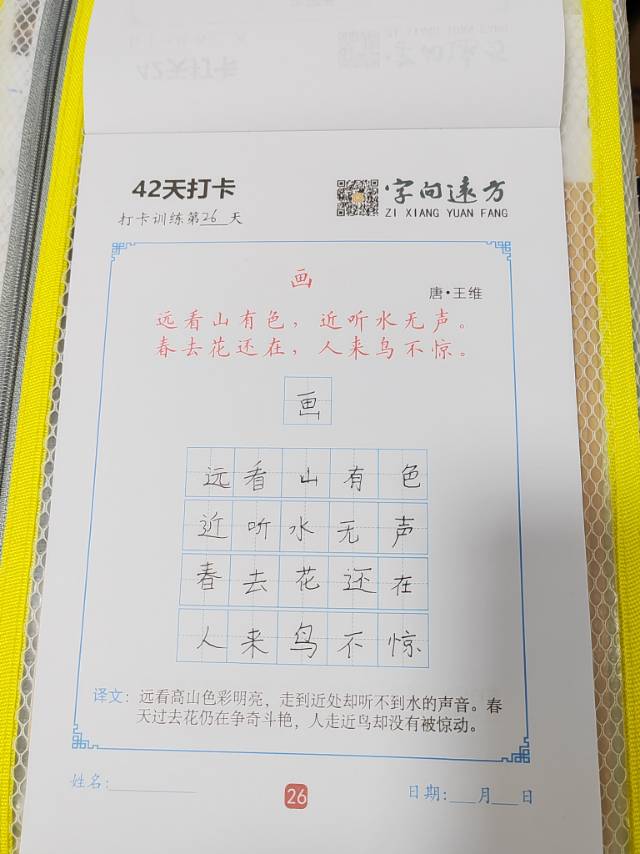 42天打卡
字向远方
打卡训练第26天
ZI XIANG YUAN FANG
画
唐·王维
远看山有色，近听水无声。
春去花还在，人来鸟不惊。
画
远看山有色
近听水无声
春去花还在
人来鸟不惊
译文：远看高山色彩明亮，走到近处却听不到水的声音。春
天过去花仍在争奇斗艳，人走近鸟却没有被惊动。
姓名：
26
日期：月日